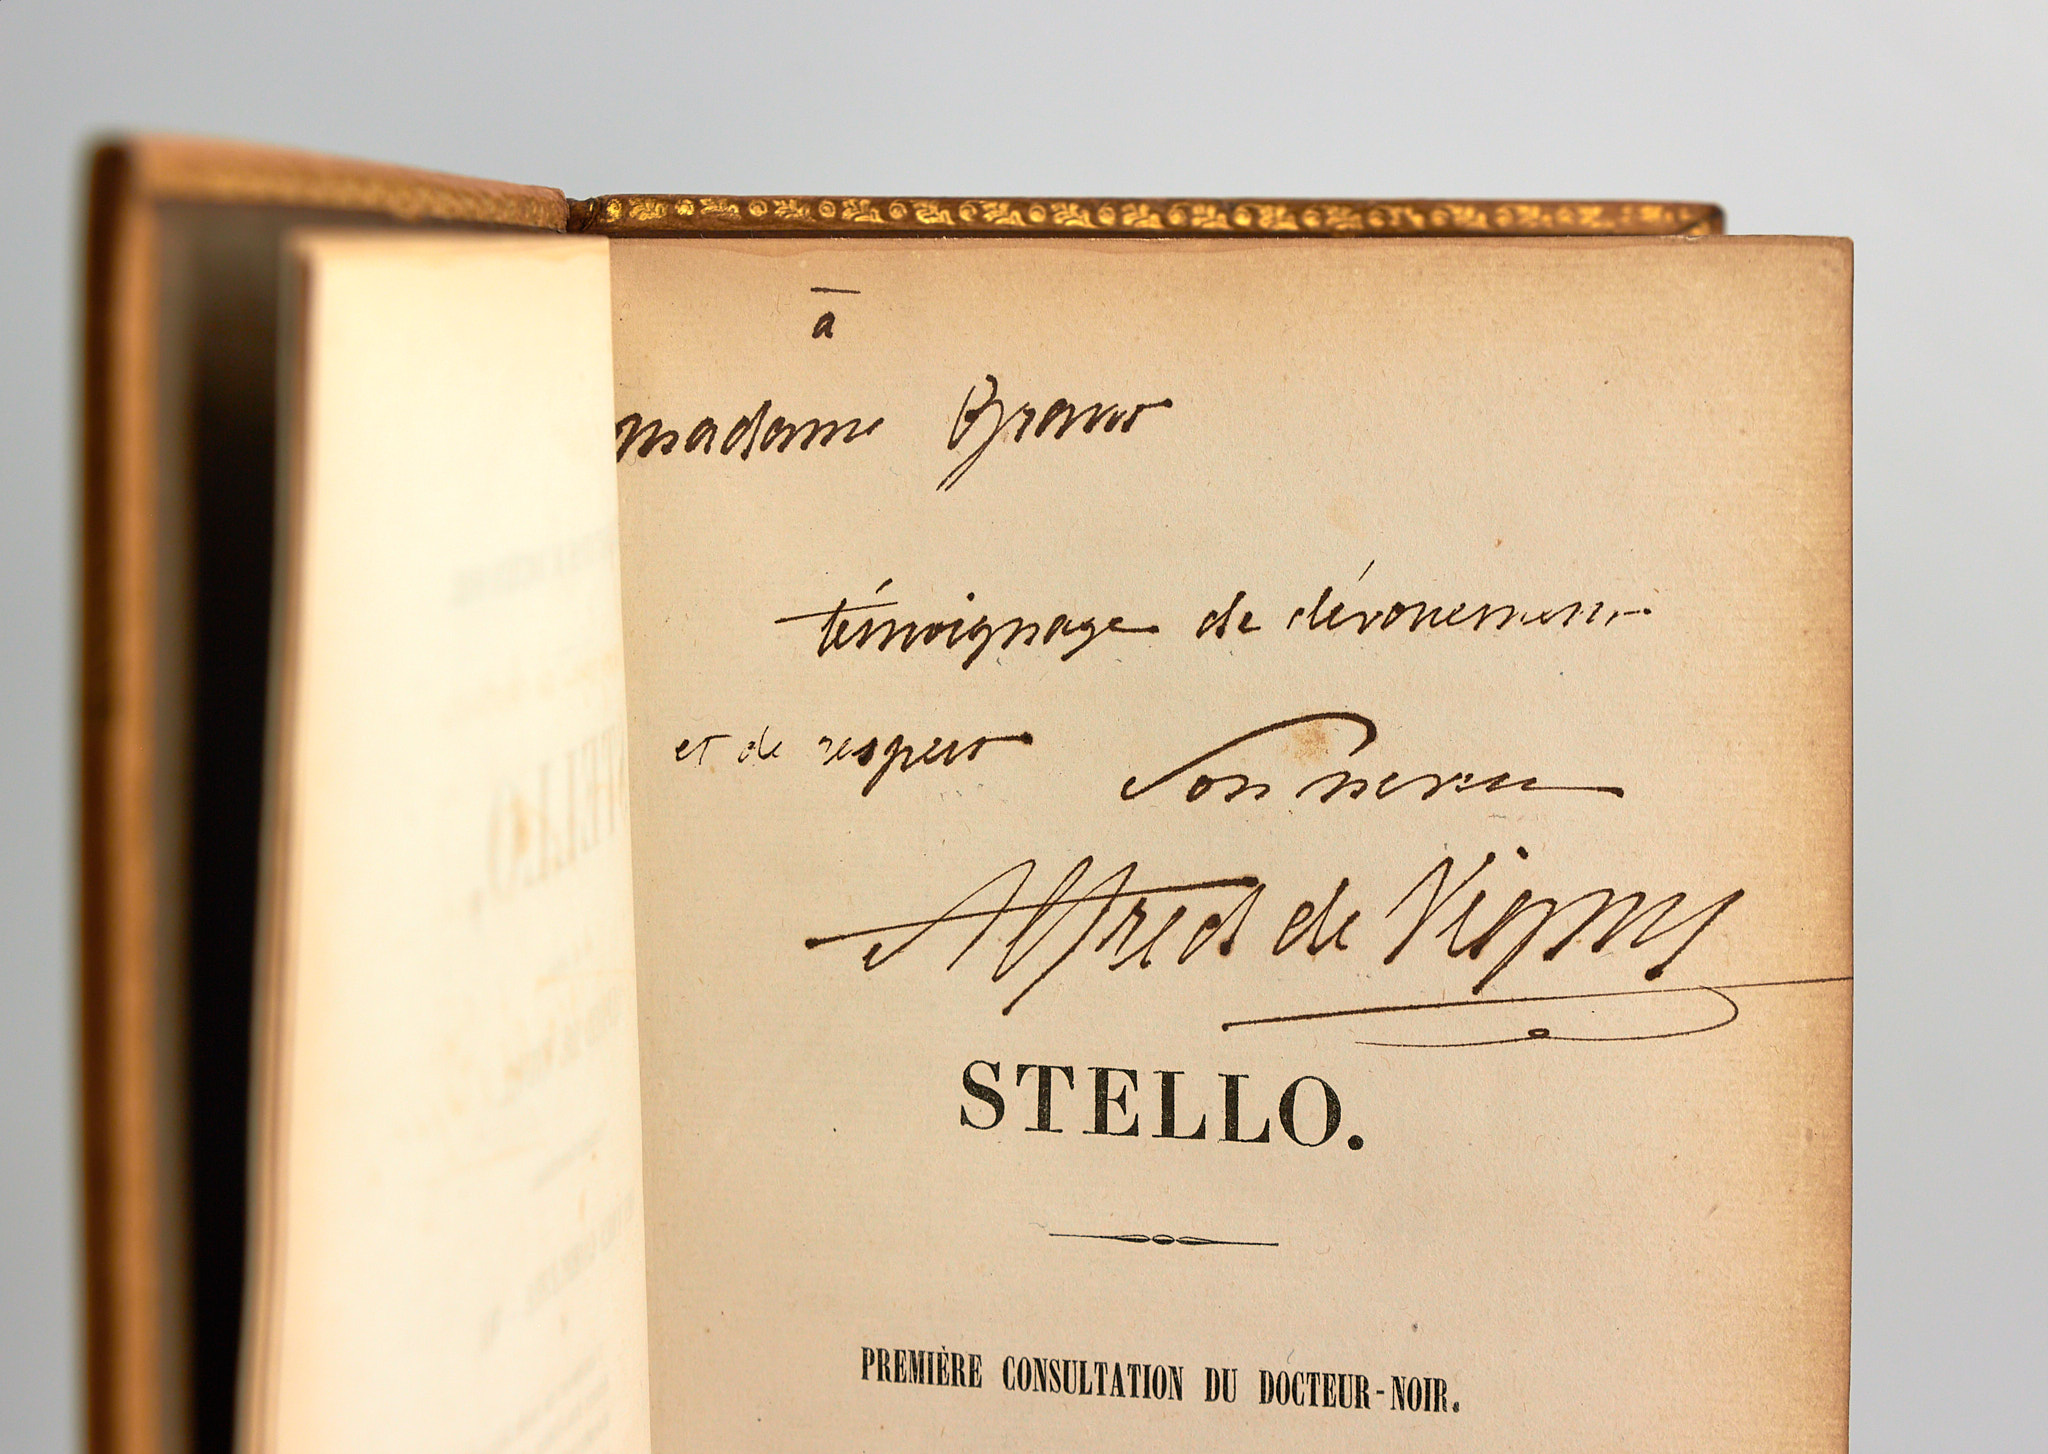 à
madame
témoignage de dévouement
et de respect
Son neveu
Alfred de Vigny
STELLO.
PREMIÈRE CONSULTATION DU DOCTEUR-NOIR.